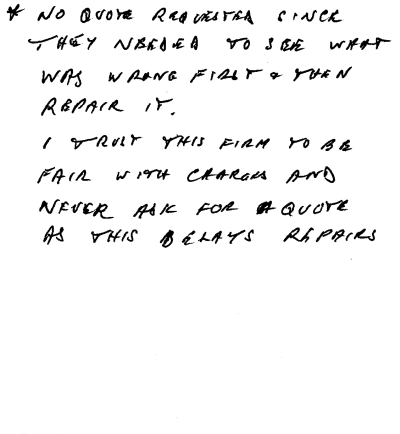 * NO QUOTE REQUESTED SINCE
THEY NEEDED TO SEE WHAT
WAS WRONG FIRST & THEN
REPAIR IT.
I TRUST THIS FIRM TO BE
FAIR WITH CHARGES AND
NEVER ASK FOR A QUOTE
AS THIS DELAYS REPAIRS